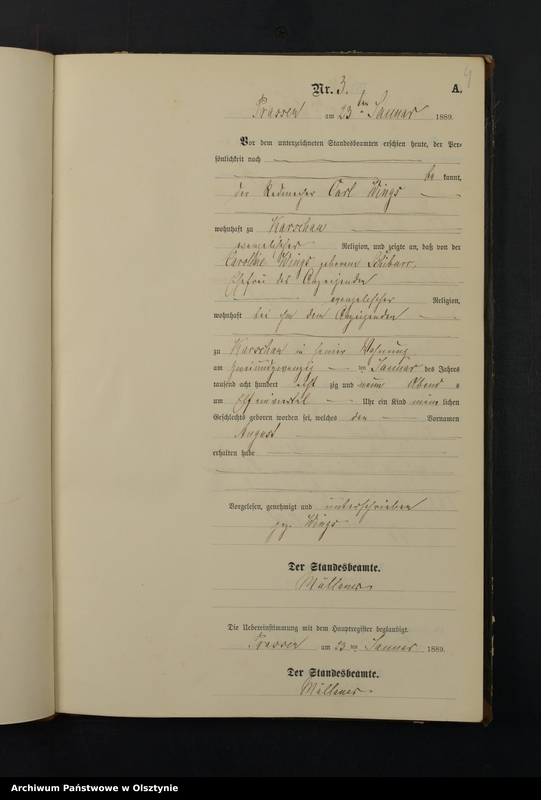 4
Nr. 3. A.
Prassen am 23ten Januar 1889.
Vor dem unterzeichneten Standesbeamten erschien heute, der Per-
sönlichkeit nach
be kannt,
der Carl Wings
wohnhaft zu Karschau
evangelischer Religion, und zeigte an, daß von der
Caroline Wings geborene
Ehefrau des Anzeigenden
evangelischer Religion,
wohnhaft bei ihm dem Anzeigenden
zu Karschau in seiner Wohnung
am zweiundzwanzig ten Januar des Jahres
tausend acht hundert acht zig und neun Abend s
um Uhr ein Kind männ lichen
Geschlechts geboren worden sei, welches den Vornamen
August
erhalten habe
Vorgelesen, genehmigt und unterschrieben
gez. Wings
Der Standesbeamte.
Müllauer
Die Uebereinstimmung mit dem Hauptregister beglaubigt.
Prassen am 23 ten Januar 1889.
Der Standesbeamte.
Müllauer
Archiwum Państwowe w Olsztynie